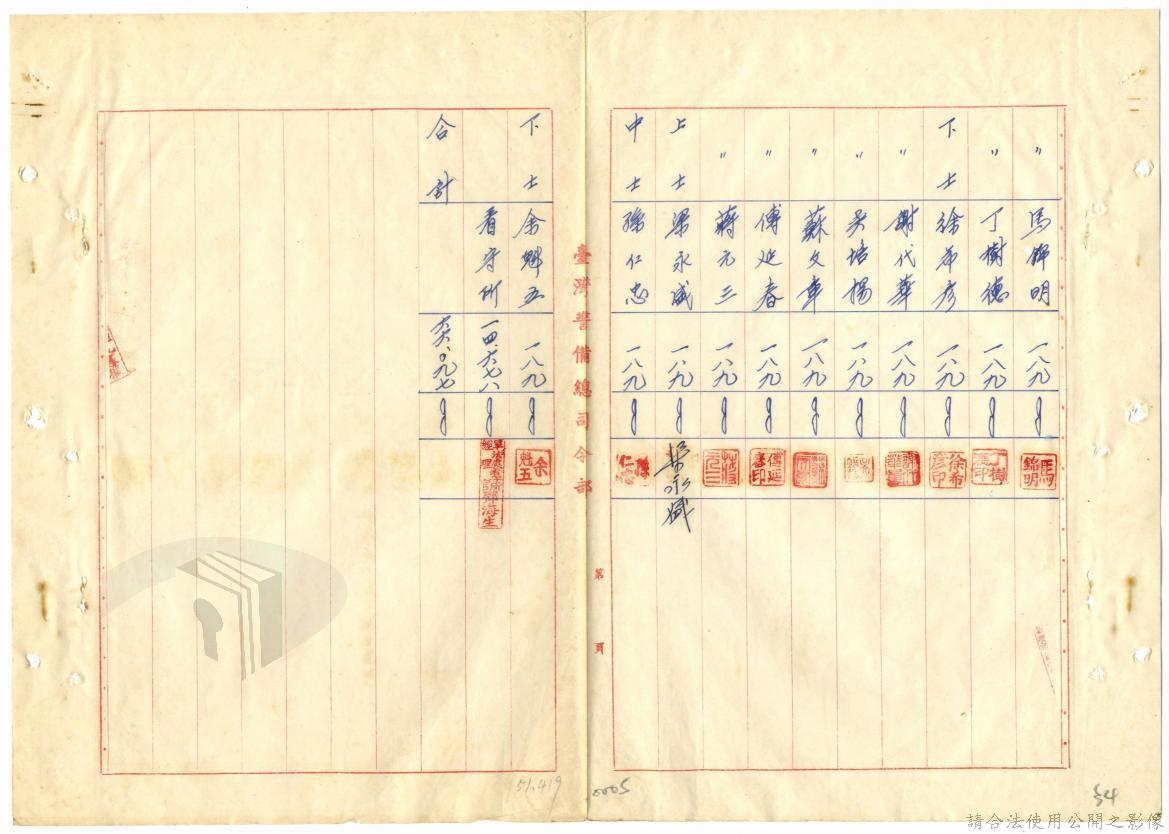 〃 馬錦明 一八九
〃 丁樹德 一八九
下士 徐希彥 一八九
〃 謝代華 一八九
〃 吳培揚 一八九
〃 蘇文章 一八九
〃 傅延春 一八九
〃 蔣元三 一八九
上士 梁永盛 一八九 梁永盛
中士 孫仁忠 一八九
臺灣警備總司令部
第 頁
下士 余魁五 一八九 余魁五
看守所 一四.六七八
合計 六六.〇九七
馬錦明
徐希彥印
傅延春印
蔣元三
51,419
0005
54
請合法使用公開之影像